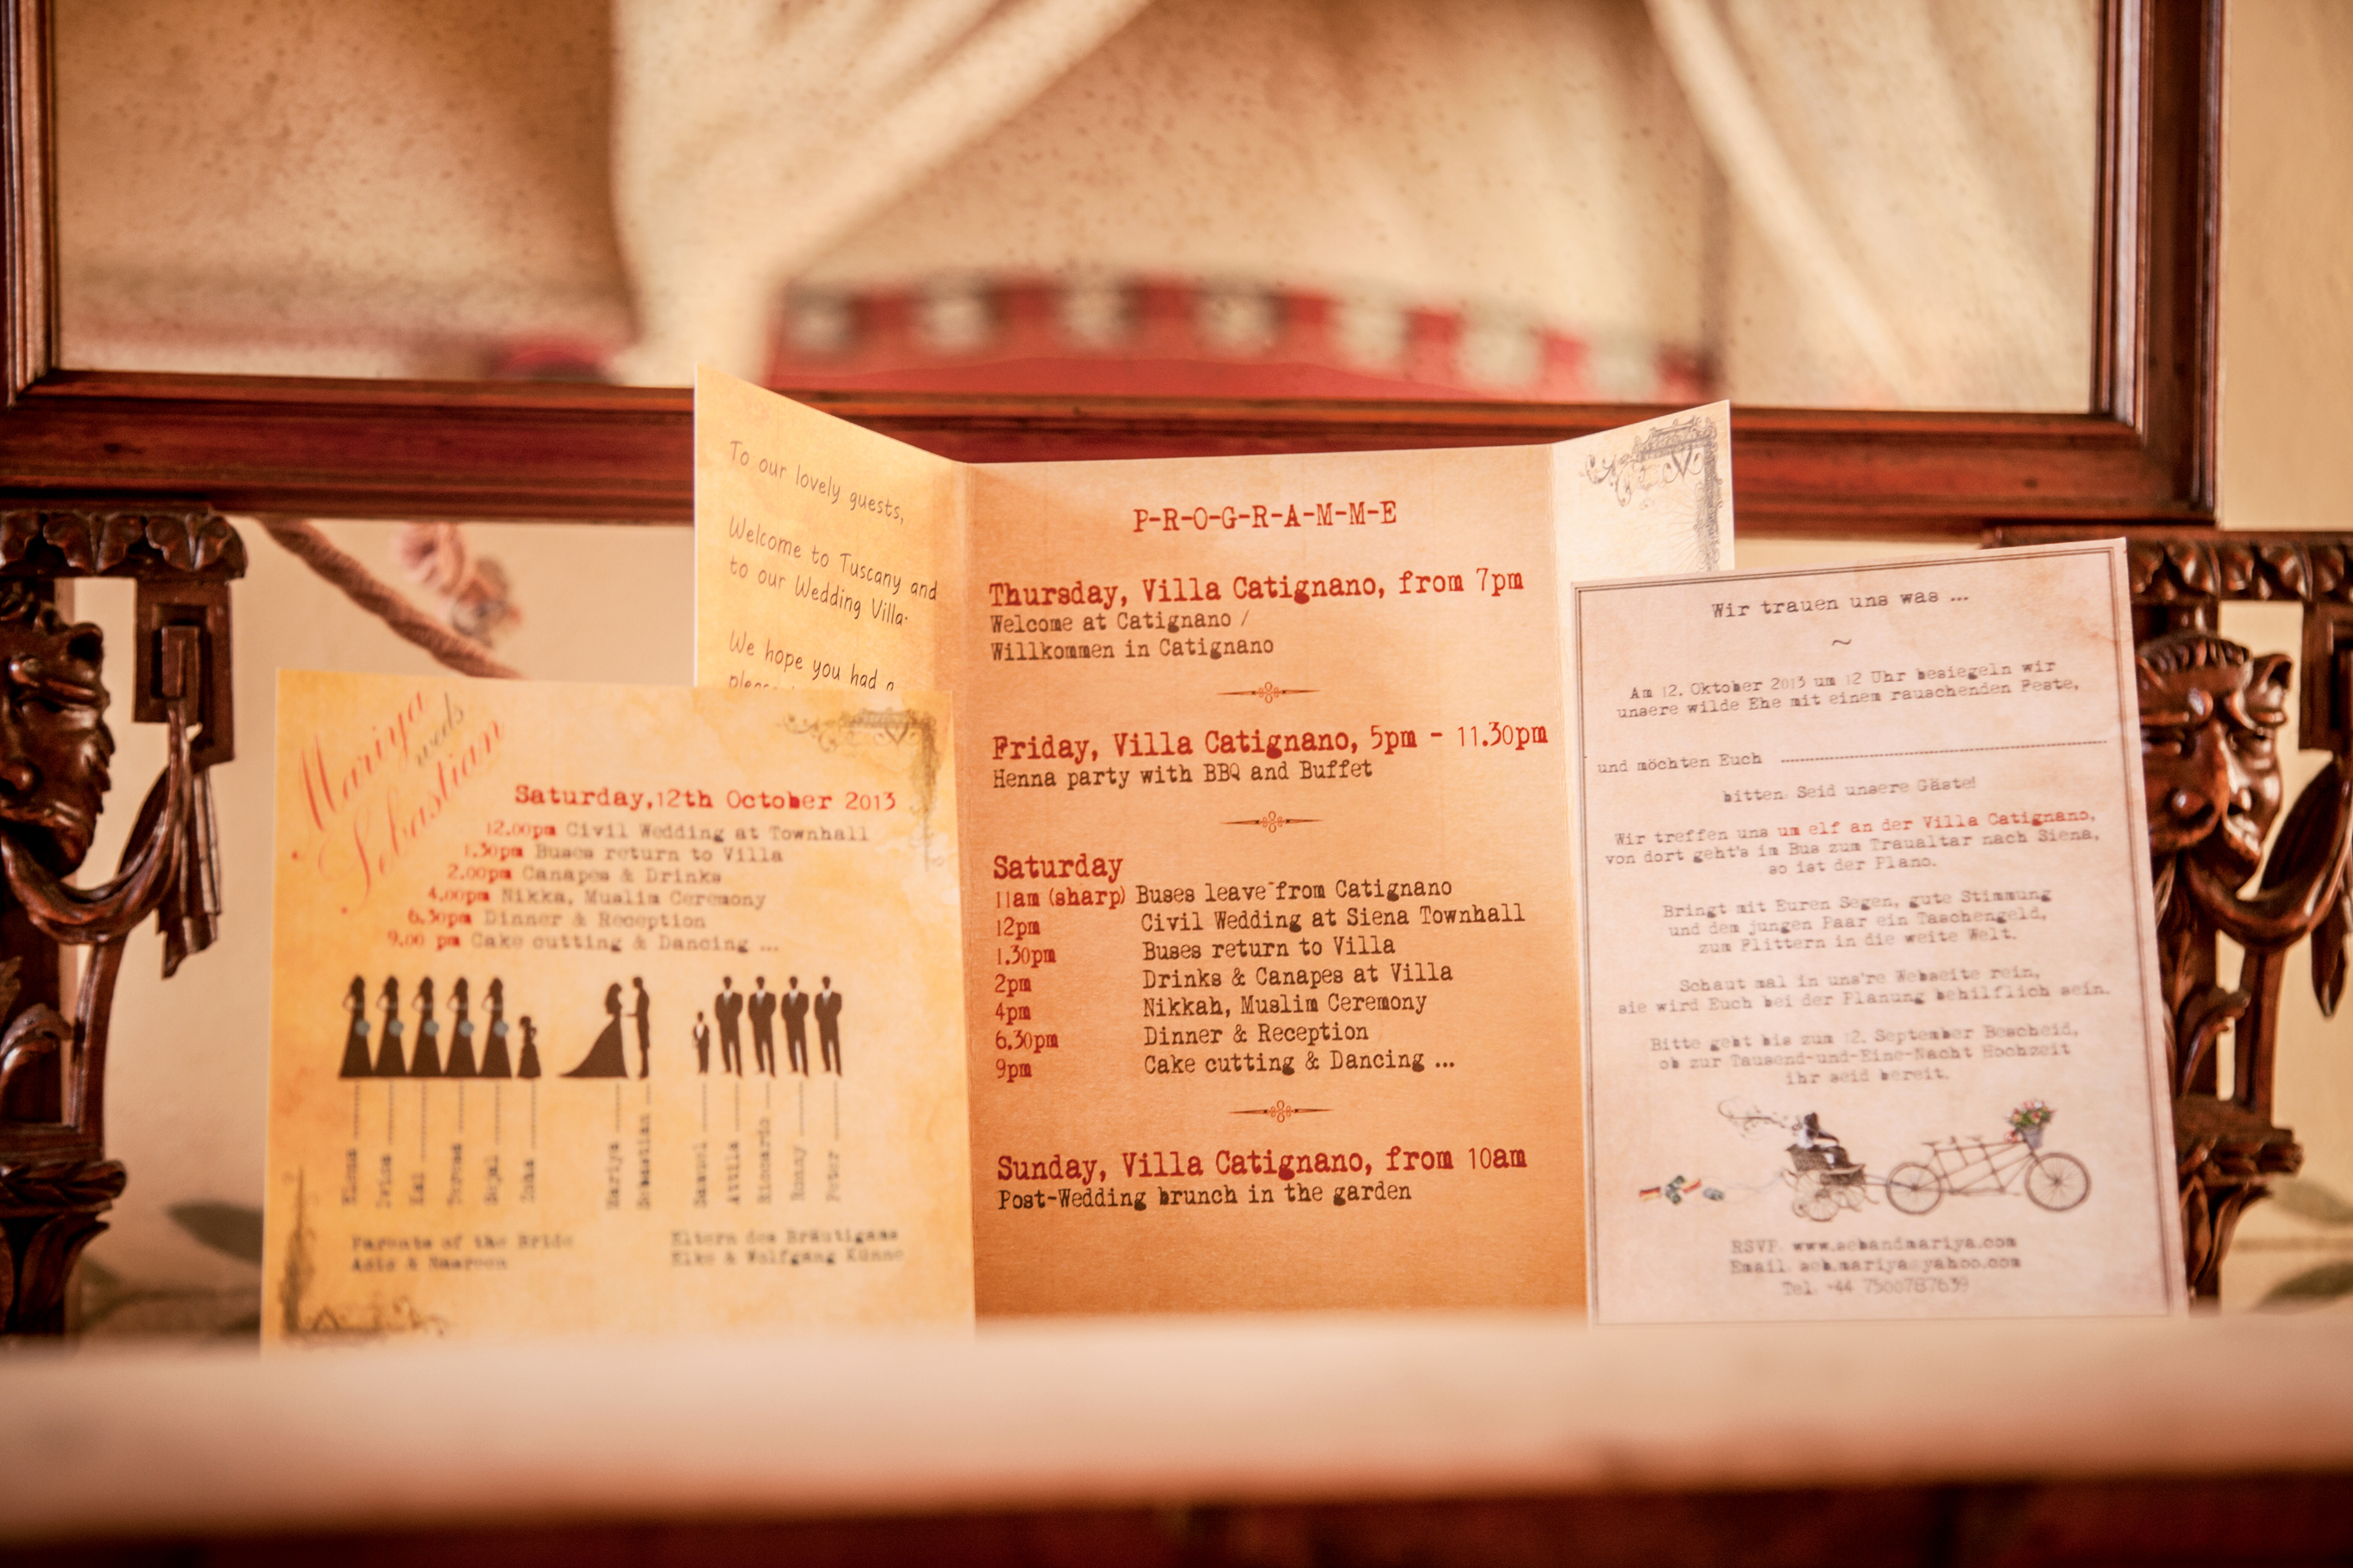 To our lovely guests,
Welcome to Tuscany and
to our Wedding Villa.
We hope you had a
P-R-O-G-R-A-M-M-E
Thursday, Villa Catignano, from 7pm
Welcome at Catignano /
Willkommen in Catignano
Friday, Villa Catignano, 5pm - 11.30pm
Henna party with BBQ and Buffet
Saturday
11am (sharp) Buses leave from Catignano
12pm Civil Wedding at Siena Townhall
1.30pm Buses return to Villa
2pm Drinks & Canapes at Villa
4pm Nikkah, Muslim Ceremony
6.30pm Dinner & Reception
9pm Cake cutting & Dancing ...
Sunday, Villa Catignano, from 10am
Post-Wedding brunch in the garden
Mariya
weds
Sebastian
Saturday,12th October 2013
12.00pm Civil Wedding at Townhall
1.30pm Buses return to Villa
2.00pm Canapes & Drinks
4.00pm Nikka, Muslim Ceremony
6.30pm Dinner & Reception
9.00 pm Cake cutting & Dancing ...
Mariya
Sebastian
Samuel
Attila
Riccardo
Ronny
Peter
Parents of the Bride
Eltern des Bräutigams
Elke & Wolfgang Künne
Wir trauen uns was ...
~
Am 12. Oktober 2013 um 12 Uhr besiegeln wir
unsere wilde Ehe mit einem rauschenden Feste,
und möchten Euch
bitten. Seid unsere Gäste!
Wir treffen uns um elf an der Villa Catignano,
von dort geht's im Bus zum Traualtar nach Siena,
so ist der Plano.
Bringt mit Euren Segen, gute Stimmung
und dem jungen Paar ein Taschengeld,
zum Flittern in die weite Welt.
Schaut mal in uns're Webseite rein,
sie wird Euch bei der Planung behilflich sein.
Bitte gebt bis zum 12. September Bescheid,
ob zur Tausend-und-Eine-Nacht Hochzeit
ihr seid bereit.
RSVP: www.sebandmariya.com
Email: seb.mariya@yahoo.com
Tel. +44 7500787639